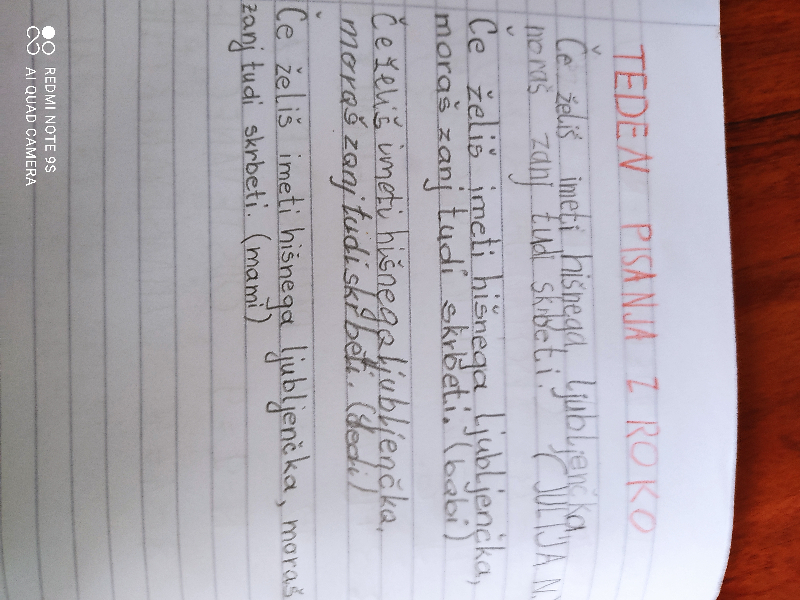 TEDEN PISANJA Z ROKO
Če želiš imeti hišnega ljubljenčka,
moraš zanj tudi skrbeti. (JULIJA N.
Če želiš imeti hišnega ljubljenčka,
moraš zanj tudi skrbeti. (babi)
Če želiš imeti hišnega ljubljenčka,
moraš zanj tudi skrbeti. (dedi)
Če želiš imeti hišnega ljubljenčka, moraš
zanj tudi skrbeti. (mami)
REDMI NOTE 9S
AI QUAD CAMERA